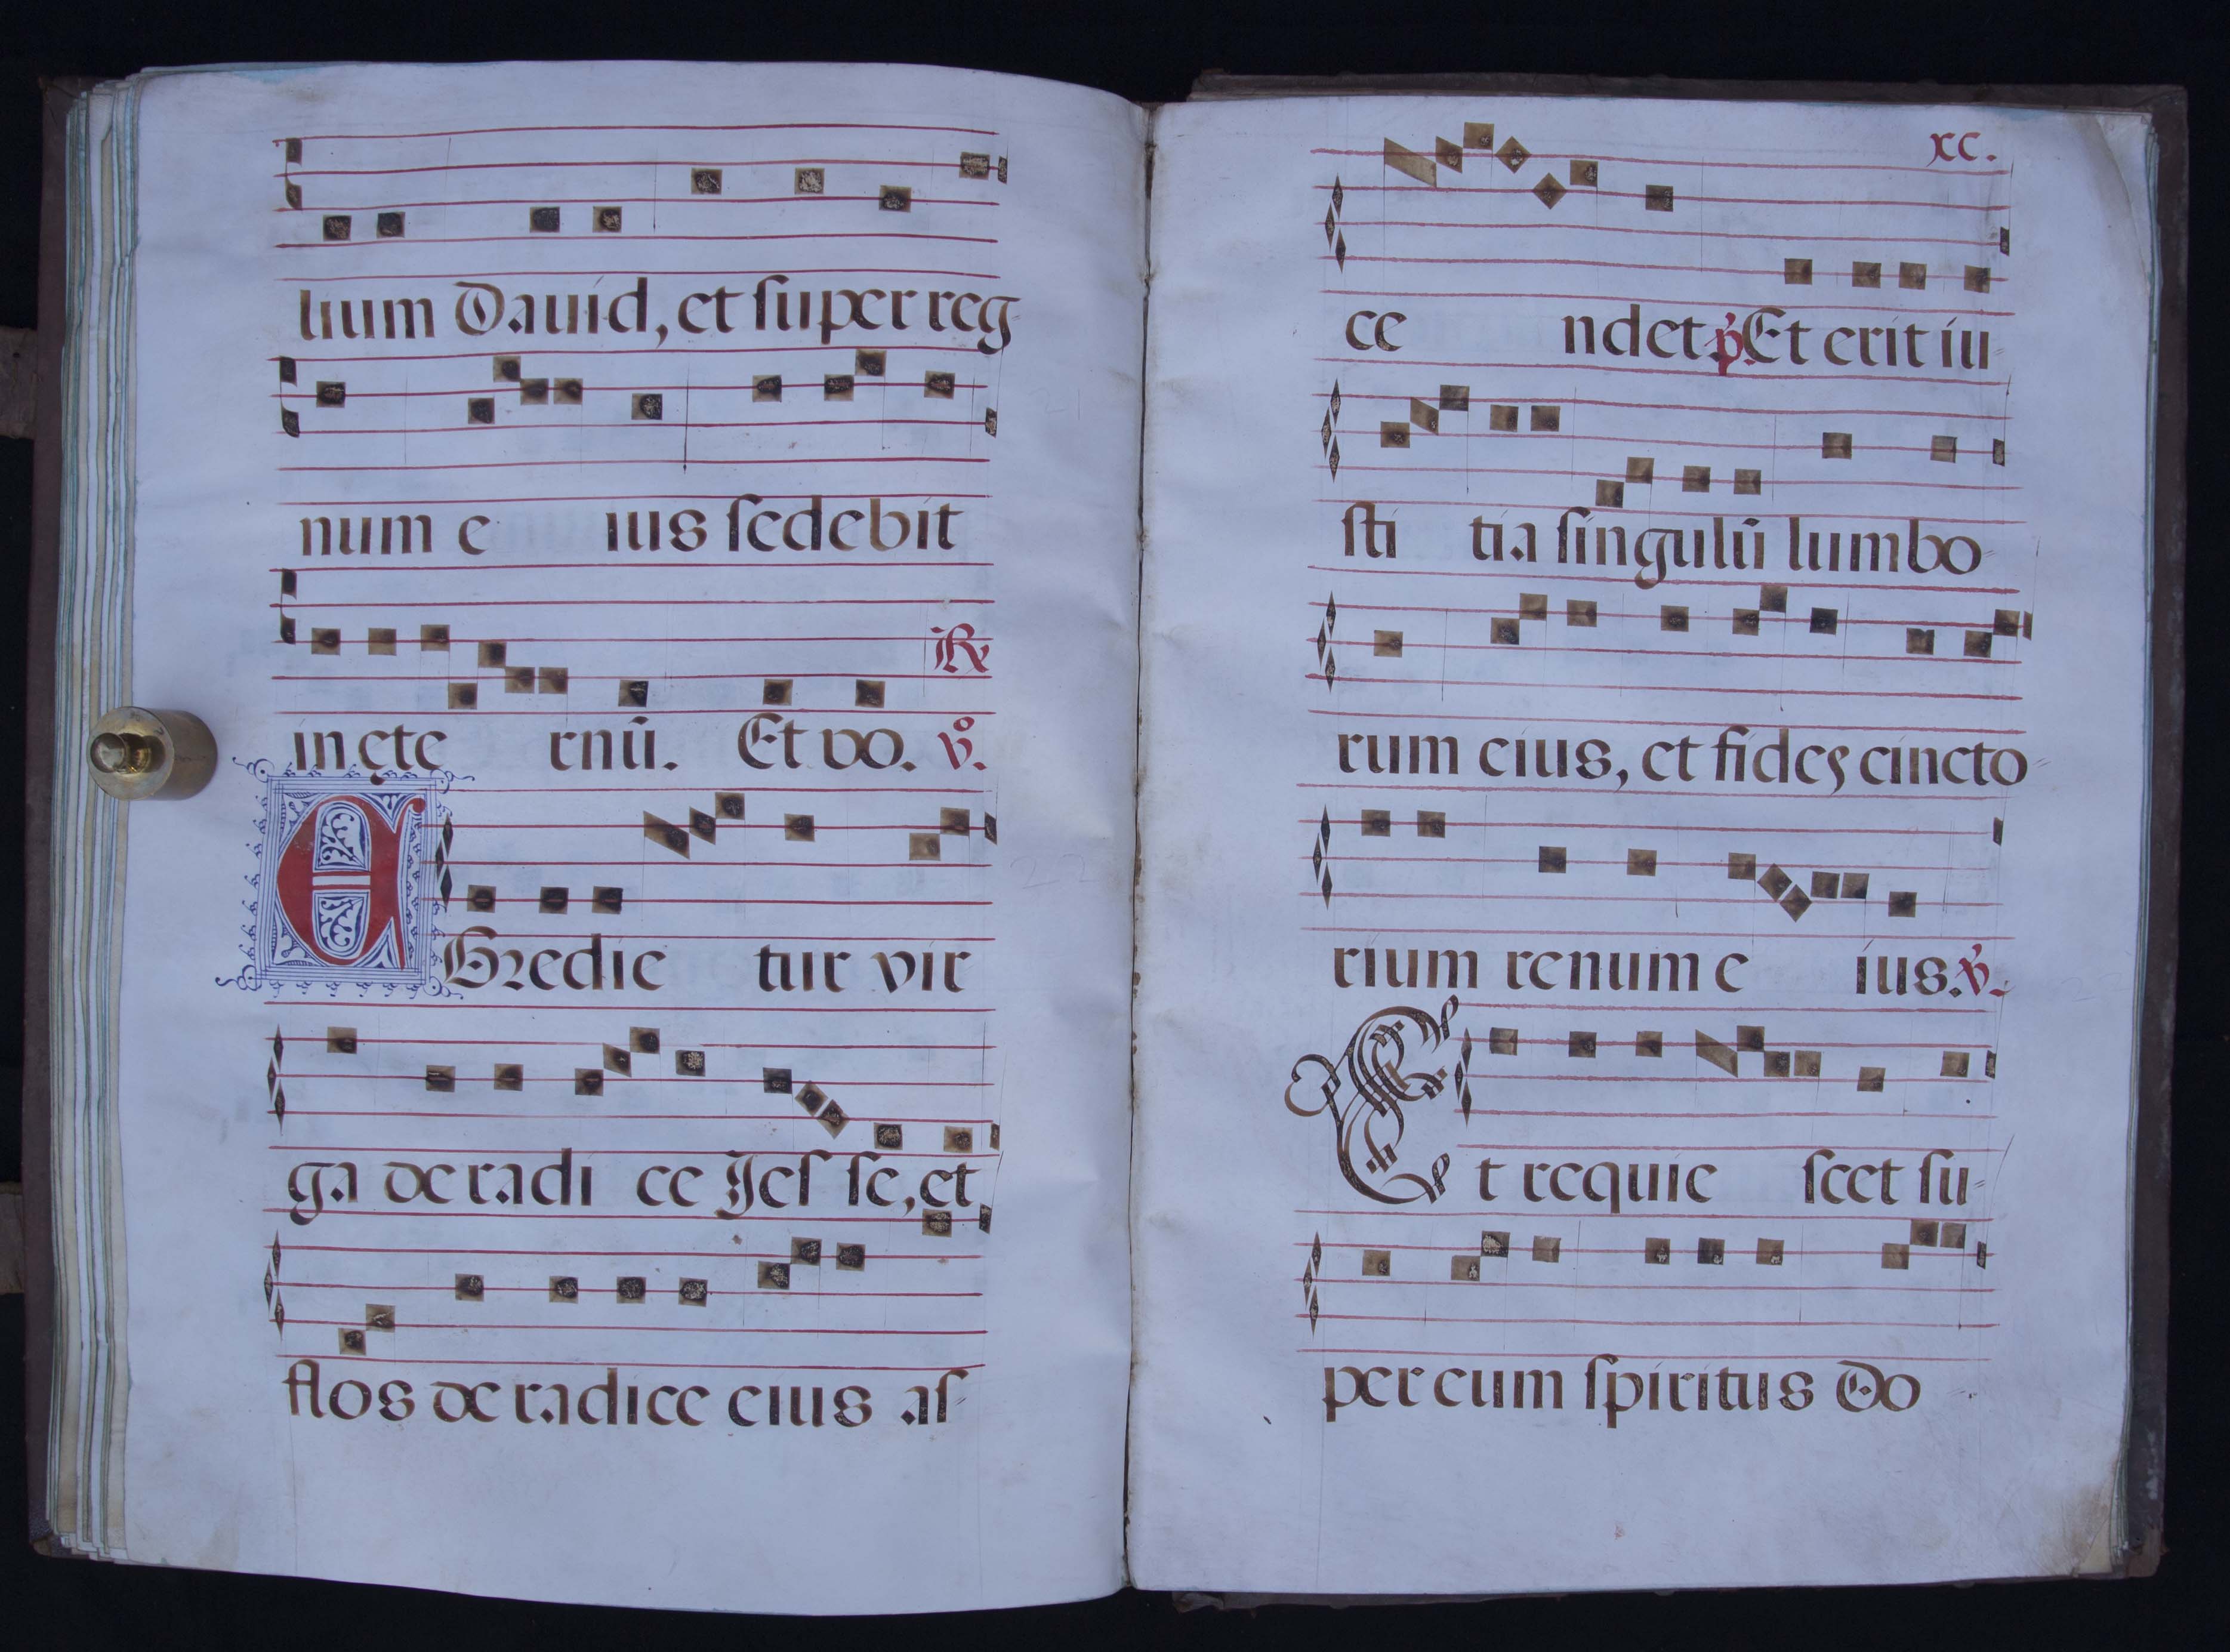 lium Dauid, et super reg
num e ius sedebit
℟
in ęte rnũ. Et vo. ℣.
EGredie tur vir
ga de radi ce Jes se, et
flos de radice eius as
xc.
ce ndet. ℣ Et erit iu
sti tia singulũ lumbo
rum eius, et fides cincto
rium renum e ius. ℣.
Et requie scet su
per eum spiritus Do